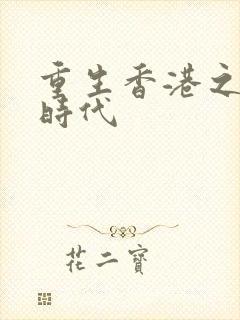 重生香港之
時代
花二寶